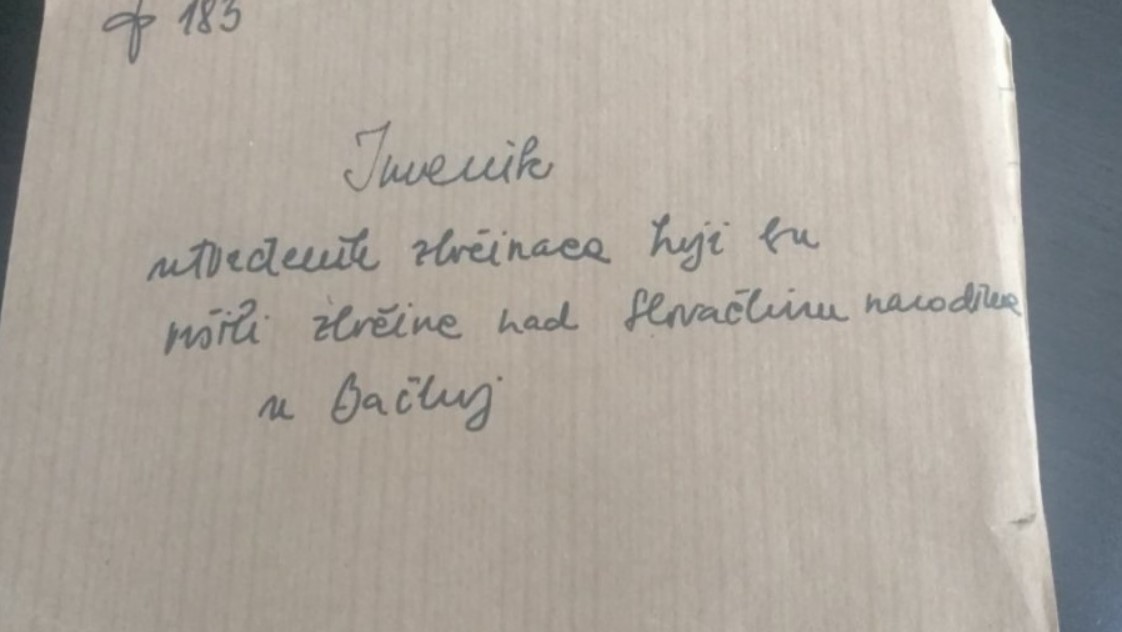 ф 183
Imenik
utvrđenih zločinaca koji su
vršili zločine nad Slovačkim narodom
u Bačkoj